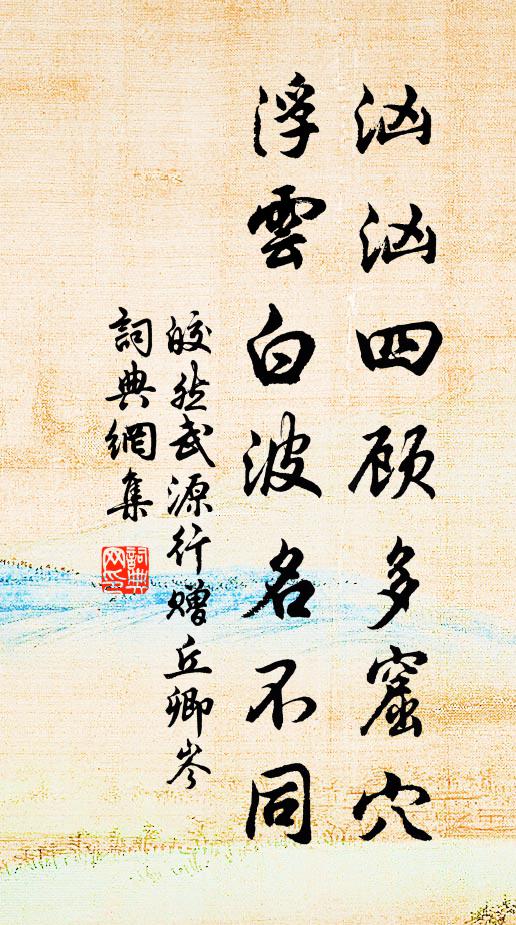 汹汹四顾多窟穴
浮雲白波名不同
皎然武源行赠丘卿岑
詞典網集
詞典网印